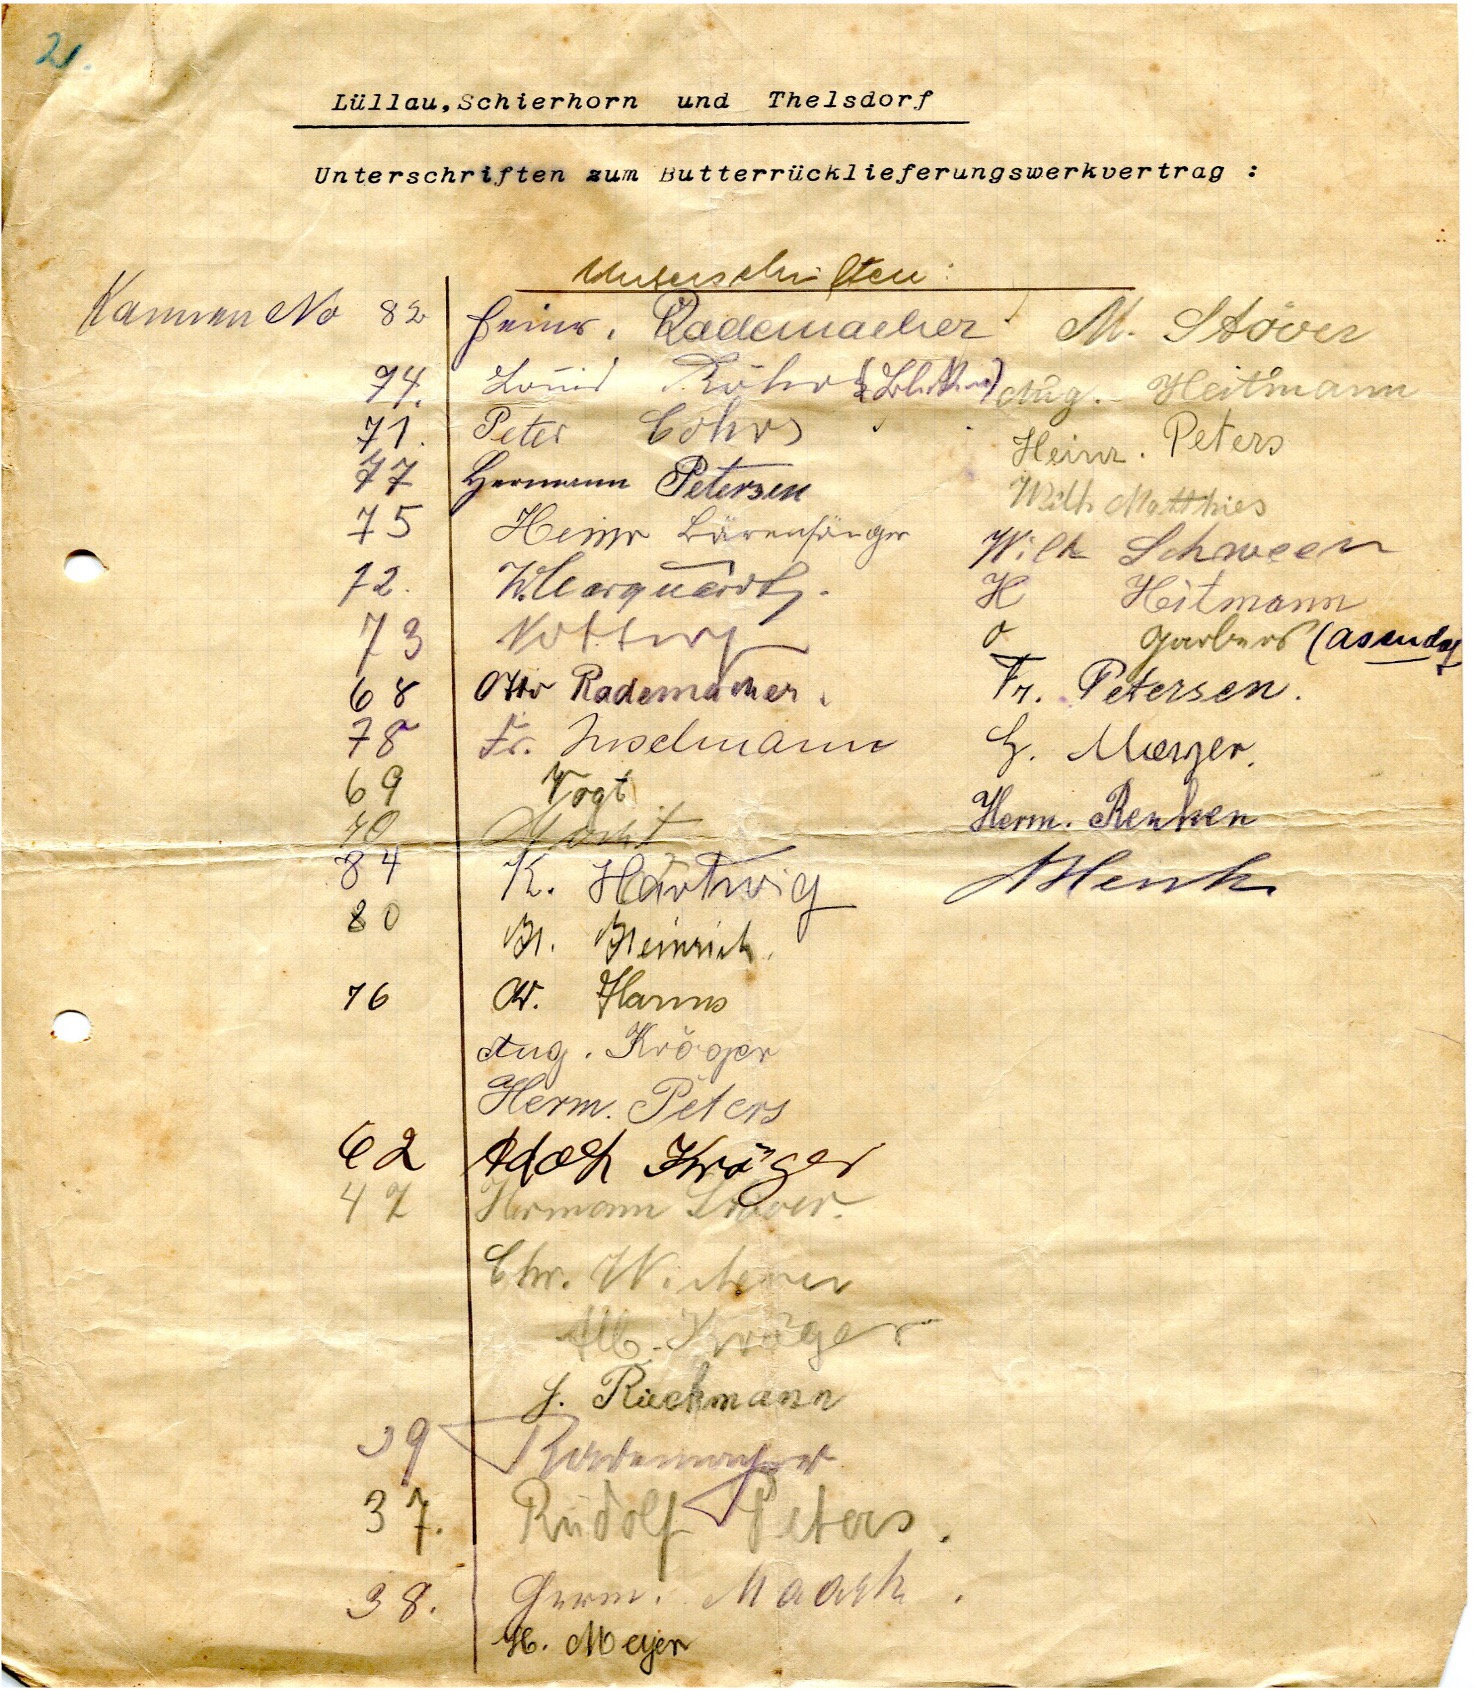 21.
Lüllau, Schierhorn und Thelsdorf
Unterschriften zum Butterrücklieferungswerkvertrag :
Unterschriften :
Kannen No 82 Heinr. Rademacher M. Stöver
74. Louis Aug. Heitmann
71. Peter Cohrs Heinr. Peters
77 Hermann Petersen Wilh Matthies
75 Heinr Bärenfänger Wilh Schween
72. W. Marquardt H Heitmann
73 O Garbers (Asendorf
68 Otto Rademacher. Fr. Petersen.
78 Fr. Inselmann H. Meyer.
69 Vogt Herm. Renken
70
84 K. Hartwig A Menk
80 H. Heinrich.
76 W. Harms
Aug. Kröger
Herm. Peters
62 Adolf Kröger
47 Hermann Stöver.
Chr.
Alb. Kröger
H. Rieckmann
39 Rademacher
37. Rudolf Peters.
38. Herm. Maack.
H. Meyer